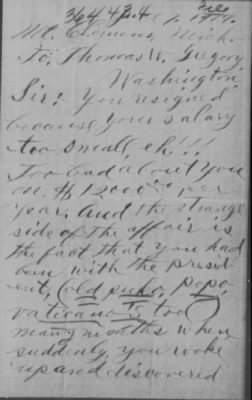 364474
Mt. Clemens, Mich.
To: Thomas W. Gregory
Washington
Sir! You resigned
because your salary
too small, eh!!!
Too bad about you
on $12000 per
year, and the strange
side of the affair is
the fact that you had
been with the presid
ent, (old
vaticano is too)
many months when
suddenly, you woke
up and discovered